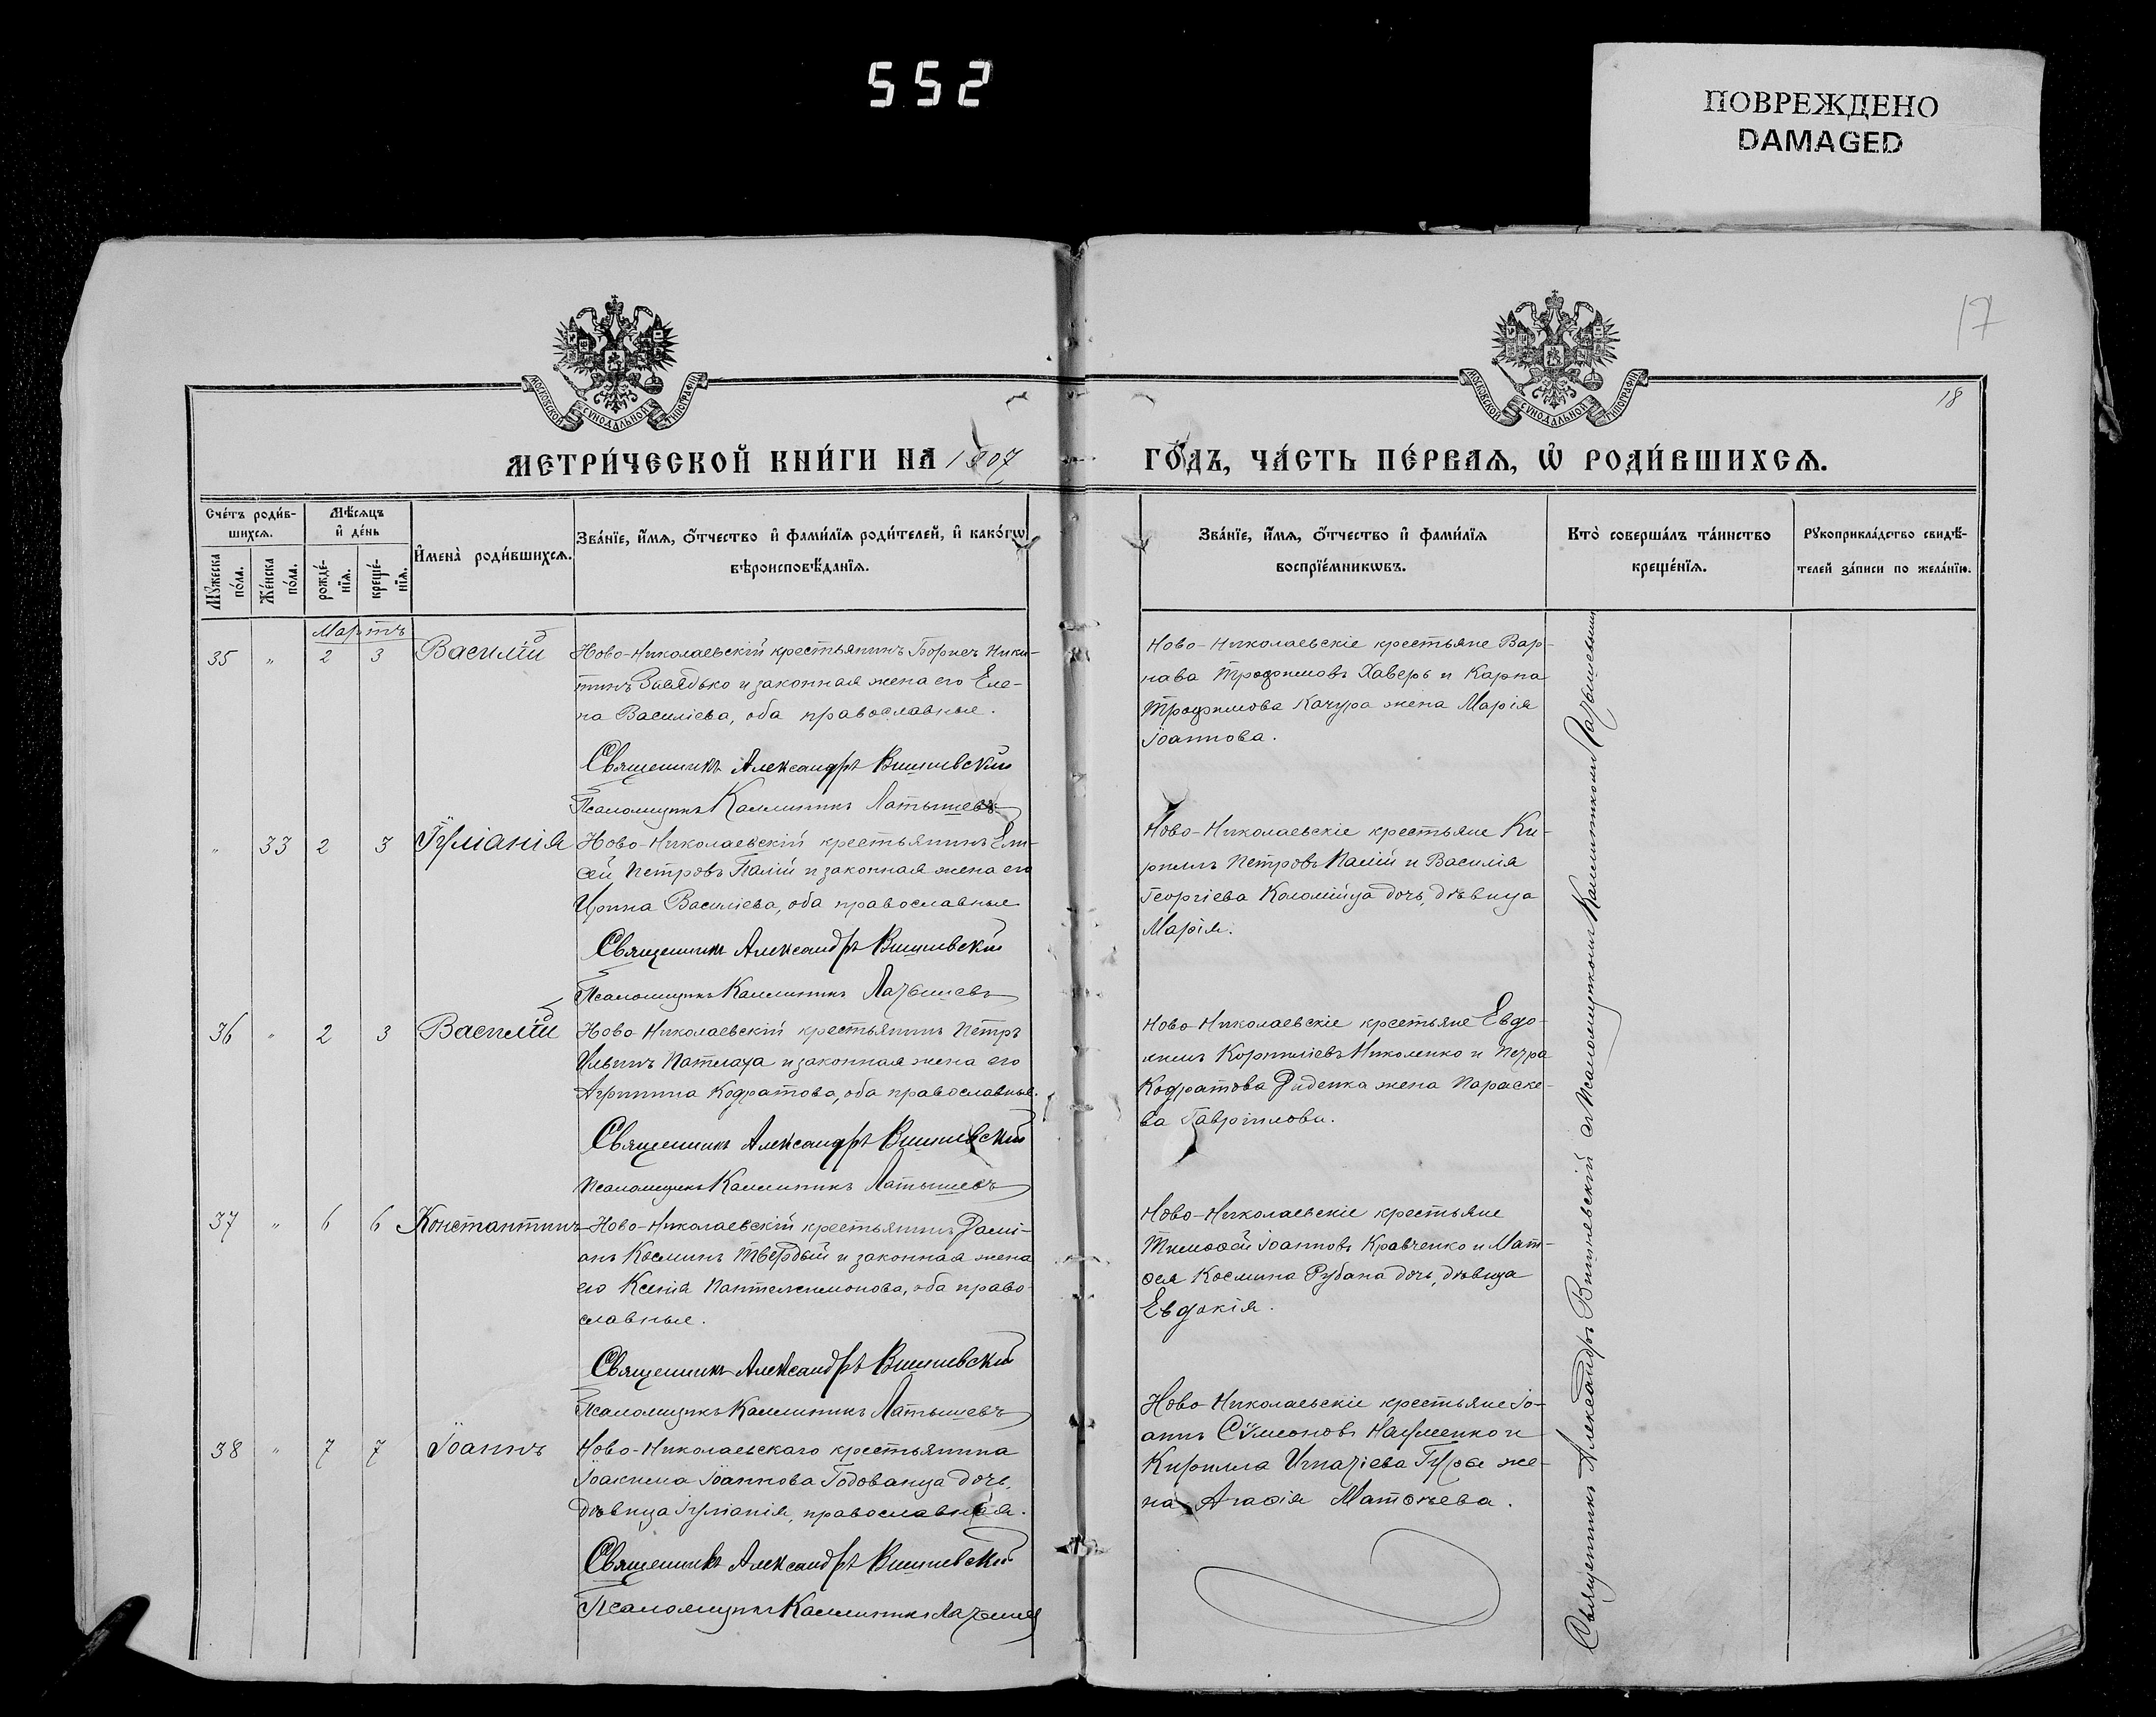 552
ПОВРЕЖДЕНО
DAMAGED
17
18
МОСКОВСКОЙ СѴНОДАЛЬНОЙ ТИПОГРАФІИ
МОСКОВСКОЙ СѴНОДАЛЬНОЙ ТИПОГРАФІИ
МЕТРИ́ЧЕСКОЙ КНИ́ГИ НА 1907
ГО́ДЪ, ЧА́СТЬ ПЕ́РВАЯ, Ѡ҆ РОДИ́ВШИХСЯ.
Сче́тъ роди́в-
шихся.
Мѣ́сяцъ
и҆ де́нь
Мꙋ́жеска
по́ла.
Же́нска
по́ла.
рожде́-
нїя.
креще́-
нїя.
И҆мена̀ роди́вшихся.
Зва́нїе, и҆́мя, ѻ҆́тчество и҆ фами́лїя роди́телей, и҆ како́гѡ
вѣроисповѣ́данїя.
Зва́нїе, и҆́мя, ѻ҆́тчество и҆ фами́лїя
воспрїе́мникѡвъ.
Кто̀ соверша́лъ та́инство
креще́нїя.
Рꙋкоприкла́дство свидѣ́-
телей за́писи по жела́нїю.
Мартъ
35 " 2 3 Василій
Ново-Николаевскій крестьянинъ Борисъ Ники-
тинъ и законная жена его Еле-
на Василіева, оба православные.
Священникъ Александръ Вишневскій
Псаломщикъ Каллиникъ Латышевъ
Ново-Николаевскіе крестьяне Вар-
нава Трофимовъ Хаверь и Карпа
Трофимова Качура жена Марія
Іоаннова.
" 33 2 3 Іуліанія
Ново-Николаевскій крестьянинъ Ели-
сей Петровъ Палій и законная жена его
Ирина Василіева, оба православные
Священникъ Александръ Вишневскій
Псаломщикъ Каллиникъ Латышевъ
Ново-Николаевскіе крестьяне Ки-
риллъ Петровъ Палій и Василія
Георгіева Коломійца дочь, дѣвица
Марія.
36 " 2 3 Василій
Ново-Николаевскій крестьянинъ Петръ
Ильинъ Патлаха и законная жена его
Агриппина Кодратова, оба православные.
Священникъ Александръ Вишневскій
Псаломщикъ Каллиникъ Латышевъ
Ново-Николаевскіе крестьяне Евдо-
кимъ Корниліевъ Николенко и Петра
Кодратова Диденка жена Параске-
ва Гавріилова.
37 " 6 6 Константинъ
Ново-Николаевскій крестьянинъ Дамі-
анъ Косминъ Твердый и законная жена
его Ксенія Пантелеимонова, оба право-
славные.
Священникъ Александръ Вишневскій
Псаломщикъ Каллиникъ Латышевъ
Ново-Николаевскіе крестьяне
Тимоѳей Іоанновъ Кравченко и Мат-
ѳея Космина Рубана дочь, дѣвица
Евдокія.
38 " 7 7 Іоаннъ
Ново-Николаевскаго крестьянина
Іоакима Іоаннова Годованца дочь,
дѣвица Іуліанія, православная.
Священникъ Александръ Вишневскій
Псаломщикъ Каллиникъ Латышев
Ново-Николаевскіе крестьяне Іо-
аннъ Сѵмеоновъ Науменко и
Кирилла Игнатіева же-
на Агаѳія Матѳѣева.
Священникъ Александръ Вишневскій съ Псаломщикомъ Каллиникомъ Латышевымъ